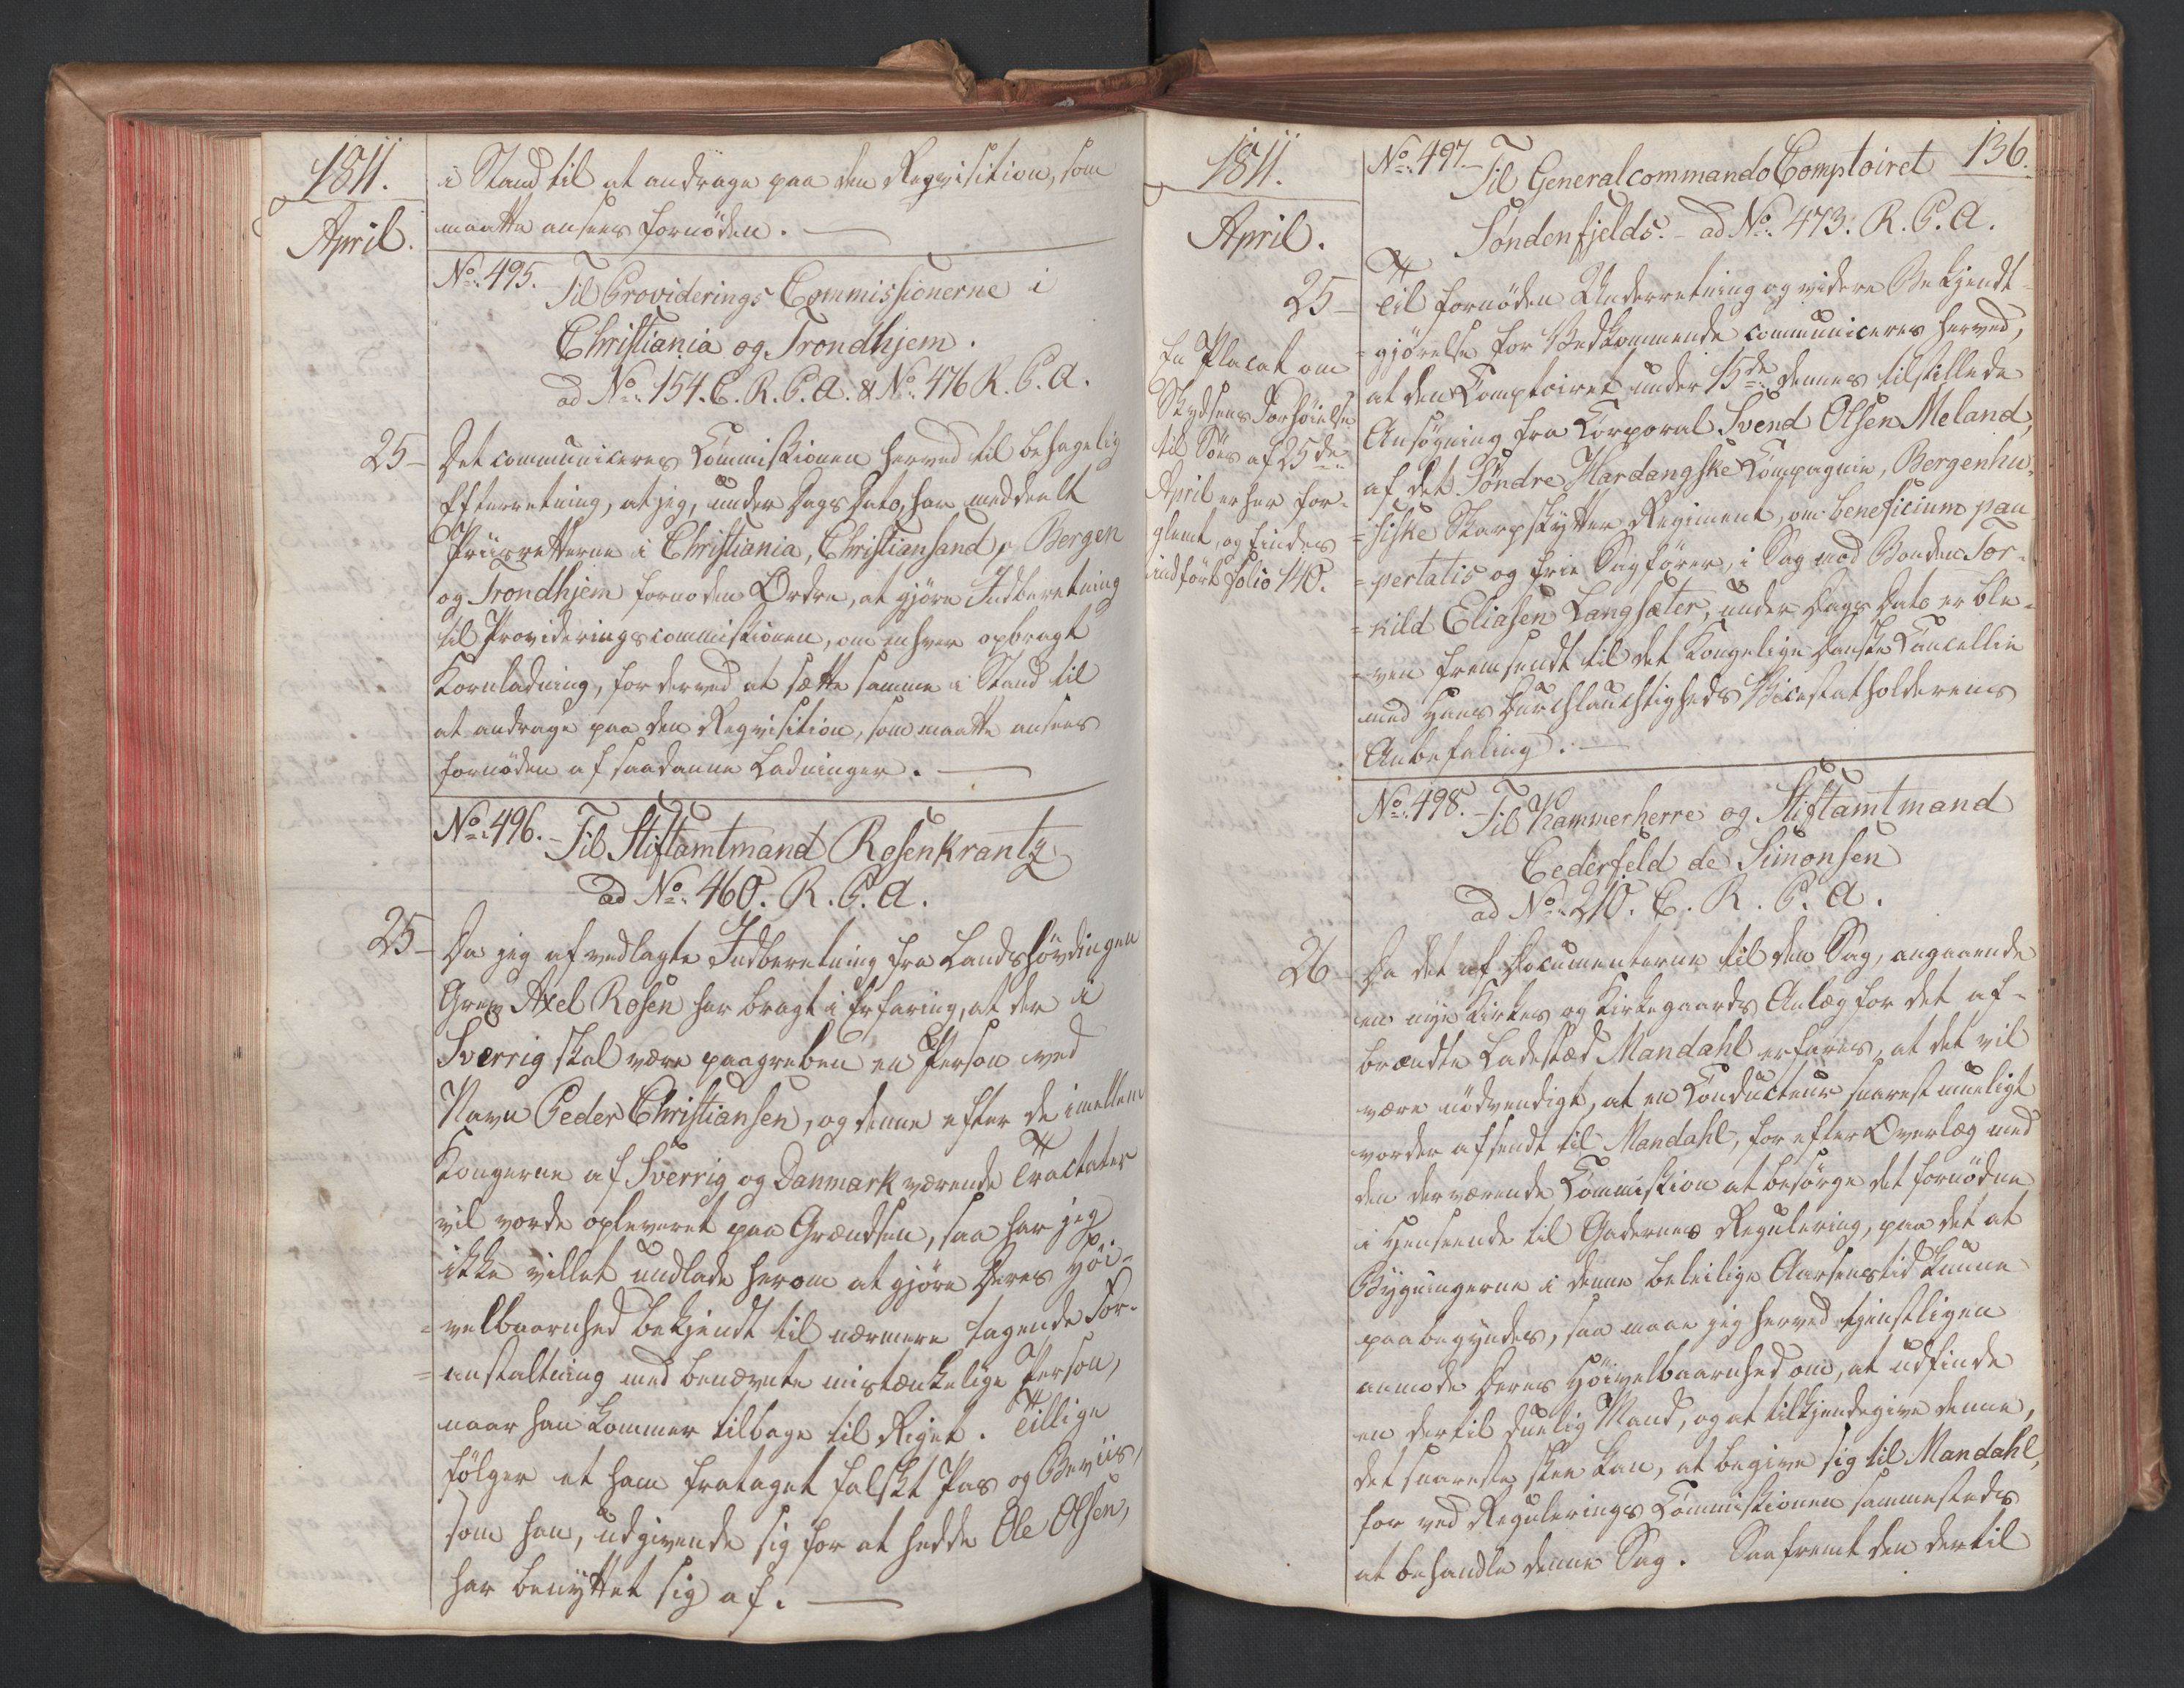 1811.
April.
i Stand til at andrage paa den Reqvisition, som
maatte ansees fornöden.
No: 495. Til Providerings Commissionerne i
Christiania og Trondhjem.
ad No: 154. C. R. P. A. & No: 476 R. P. A.
25 – Det communiceres Commissionen herved til behagelig
Efterretning, at jeg, under Dags Dato, har meddeelt
Priisretterne i Christiania, Christiansand, Bergen
og Trondhjem fornöden Ordre, at gjöre Indberetning
til Provideringscommissionen, om enhver opbragt
Kornladning, for derved at sætte samme i Stand til
at andrage paa den Reqvisition, som maatte ansees
fornöden af saadanne Ladninger.
No: 496. Til Stiftamtmand Rosenkrantz
ad No: 460. R. P. A.
25 – Da jeg af vedlagte Indberetning fra Landshövdingen
Grev Axel Rosen har bragt i Erfaring, at der i
Sverrig skal være paagreben en Person ved
Navn Peder Christiansen, og denne efter de imellem
Kongerne af Sverrig og Danmark værende Tractater
vil vorde opleveret paa Grændsen, saa har jeg
ikke villet undlade herom at gjöre Deres Höi-
=velbaarnhed bekjendt til nærmere tagende For-
=anstaltning med benævnte mistænkelige Person,
naar han kommer tilbage til Riget. Tillige
fölger et ham frataget falskt Pas og Beviis,
som han, udgivende sig for at hedde Ole Olsen,
har benyttet sig af.
1811.
April.
136.
No: 497. Til Generalcommando Comptoiret
Söndenfjelds. – ad No: 473: R. P. A.
25 – Til fornöden Underretning og videre Bekjendt-
=gjörelse for Vedkommende communiceres herved,
at den Comptoiret under 15de dennes tilstillede
Ansögning fra Corporal Svend Olsen Meland,
af det Söndre Hardangske Compagnie, Bergenhu-
=siske Skarpskytter Regiment, om beneficium pau
=pertatis og frie Sagförer, i Sag mod Bonden Tor-
=kild Eliasen Langsæter, under Dags Dato er ble-
=ven fremsendt til det Kongelige Danske Cancellie
med Hans Durchlauchtigheds Vicestatholderens
Anbefaling.
En Placat om
Skydsens Forhöielse
til Söes af 25de
April er her for-
glemt, og findes
indfört Folio 140.
No: 498. Til Kammerherre og Stiftamtmand
Cederfeld de Simonsen
ad No: 210. C. R. P. A.
26 – Da det af Documenterne til den Sag, angaaende
en nye Kirkes og Kirkegaards Anlæg for det af-
brændte Ladested Mandahl erfares, at det vil
være nödvendigt, at en Conducteur snarest mueligt
vorder afsendt til Mandahl, for efter Overlæg med
den derværende Commission at besörge det fornödne
i Henseende til Gadernes Regulering, paa det at
Bygningerne i denne beleilige Aarsenstid kunne
paabegyndes, saa maae jeg herved tjenstligen
anmode Deres Höivelbaarnhed om, at udfinde
en dertil duelig Mand, og at tilkjendegive denne,
det snareste skee kan, at begive sig til Mandahl,
for ved Regulerings Commissionen sammesteds
at behandle denne Sag. Saafremt den dertil